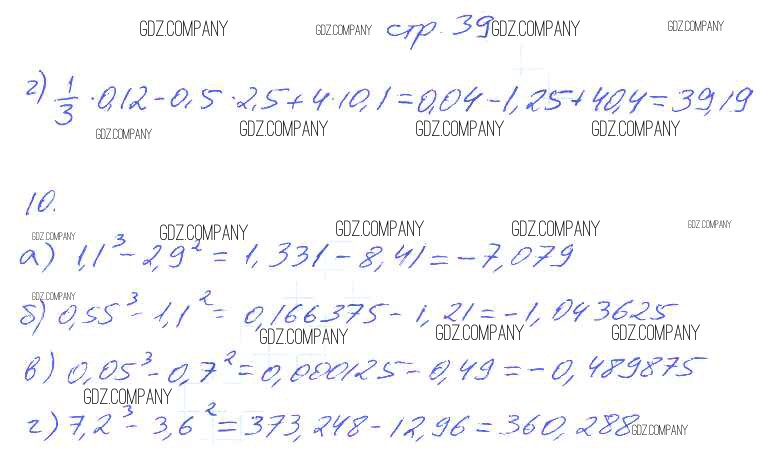 GDZ.COMPANY GDZ.COMPANY стр. 39 GDZ.COMPANY GDZ.COMPANY
г) 1/3 · 0,12 - 0,5 · 2,5 + 4 · 10,1 = 0,04 - 1,25 + 40,4 = 39,19
GDZ.COMPANY GDZ.COMPANY GDZ.COMPANY GDZ.COMPANY
10.
GDZ.COMPANY GDZ.COMPANY GDZ.COMPANY GDZ.COMPANY GDZ.COMPANY
а) 1,1³ - 2,9² = 1,331 - 8,41 = -7,079
GDZ.COMPANY
б) 0,55³ - 1,1² = 0,166375 - 1,21 = -1,043625
GDZ.COMPANY GDZ.COMPANY GDZ.COMPANY
в) 0,05³ - 0,7² = 0,000125 - 0,49 = -0,489875
GDZ.COMPANY
г) 7,2³ - 3,6² = 373,248 - 12,96 = 360,288
GDZ.COMPANY